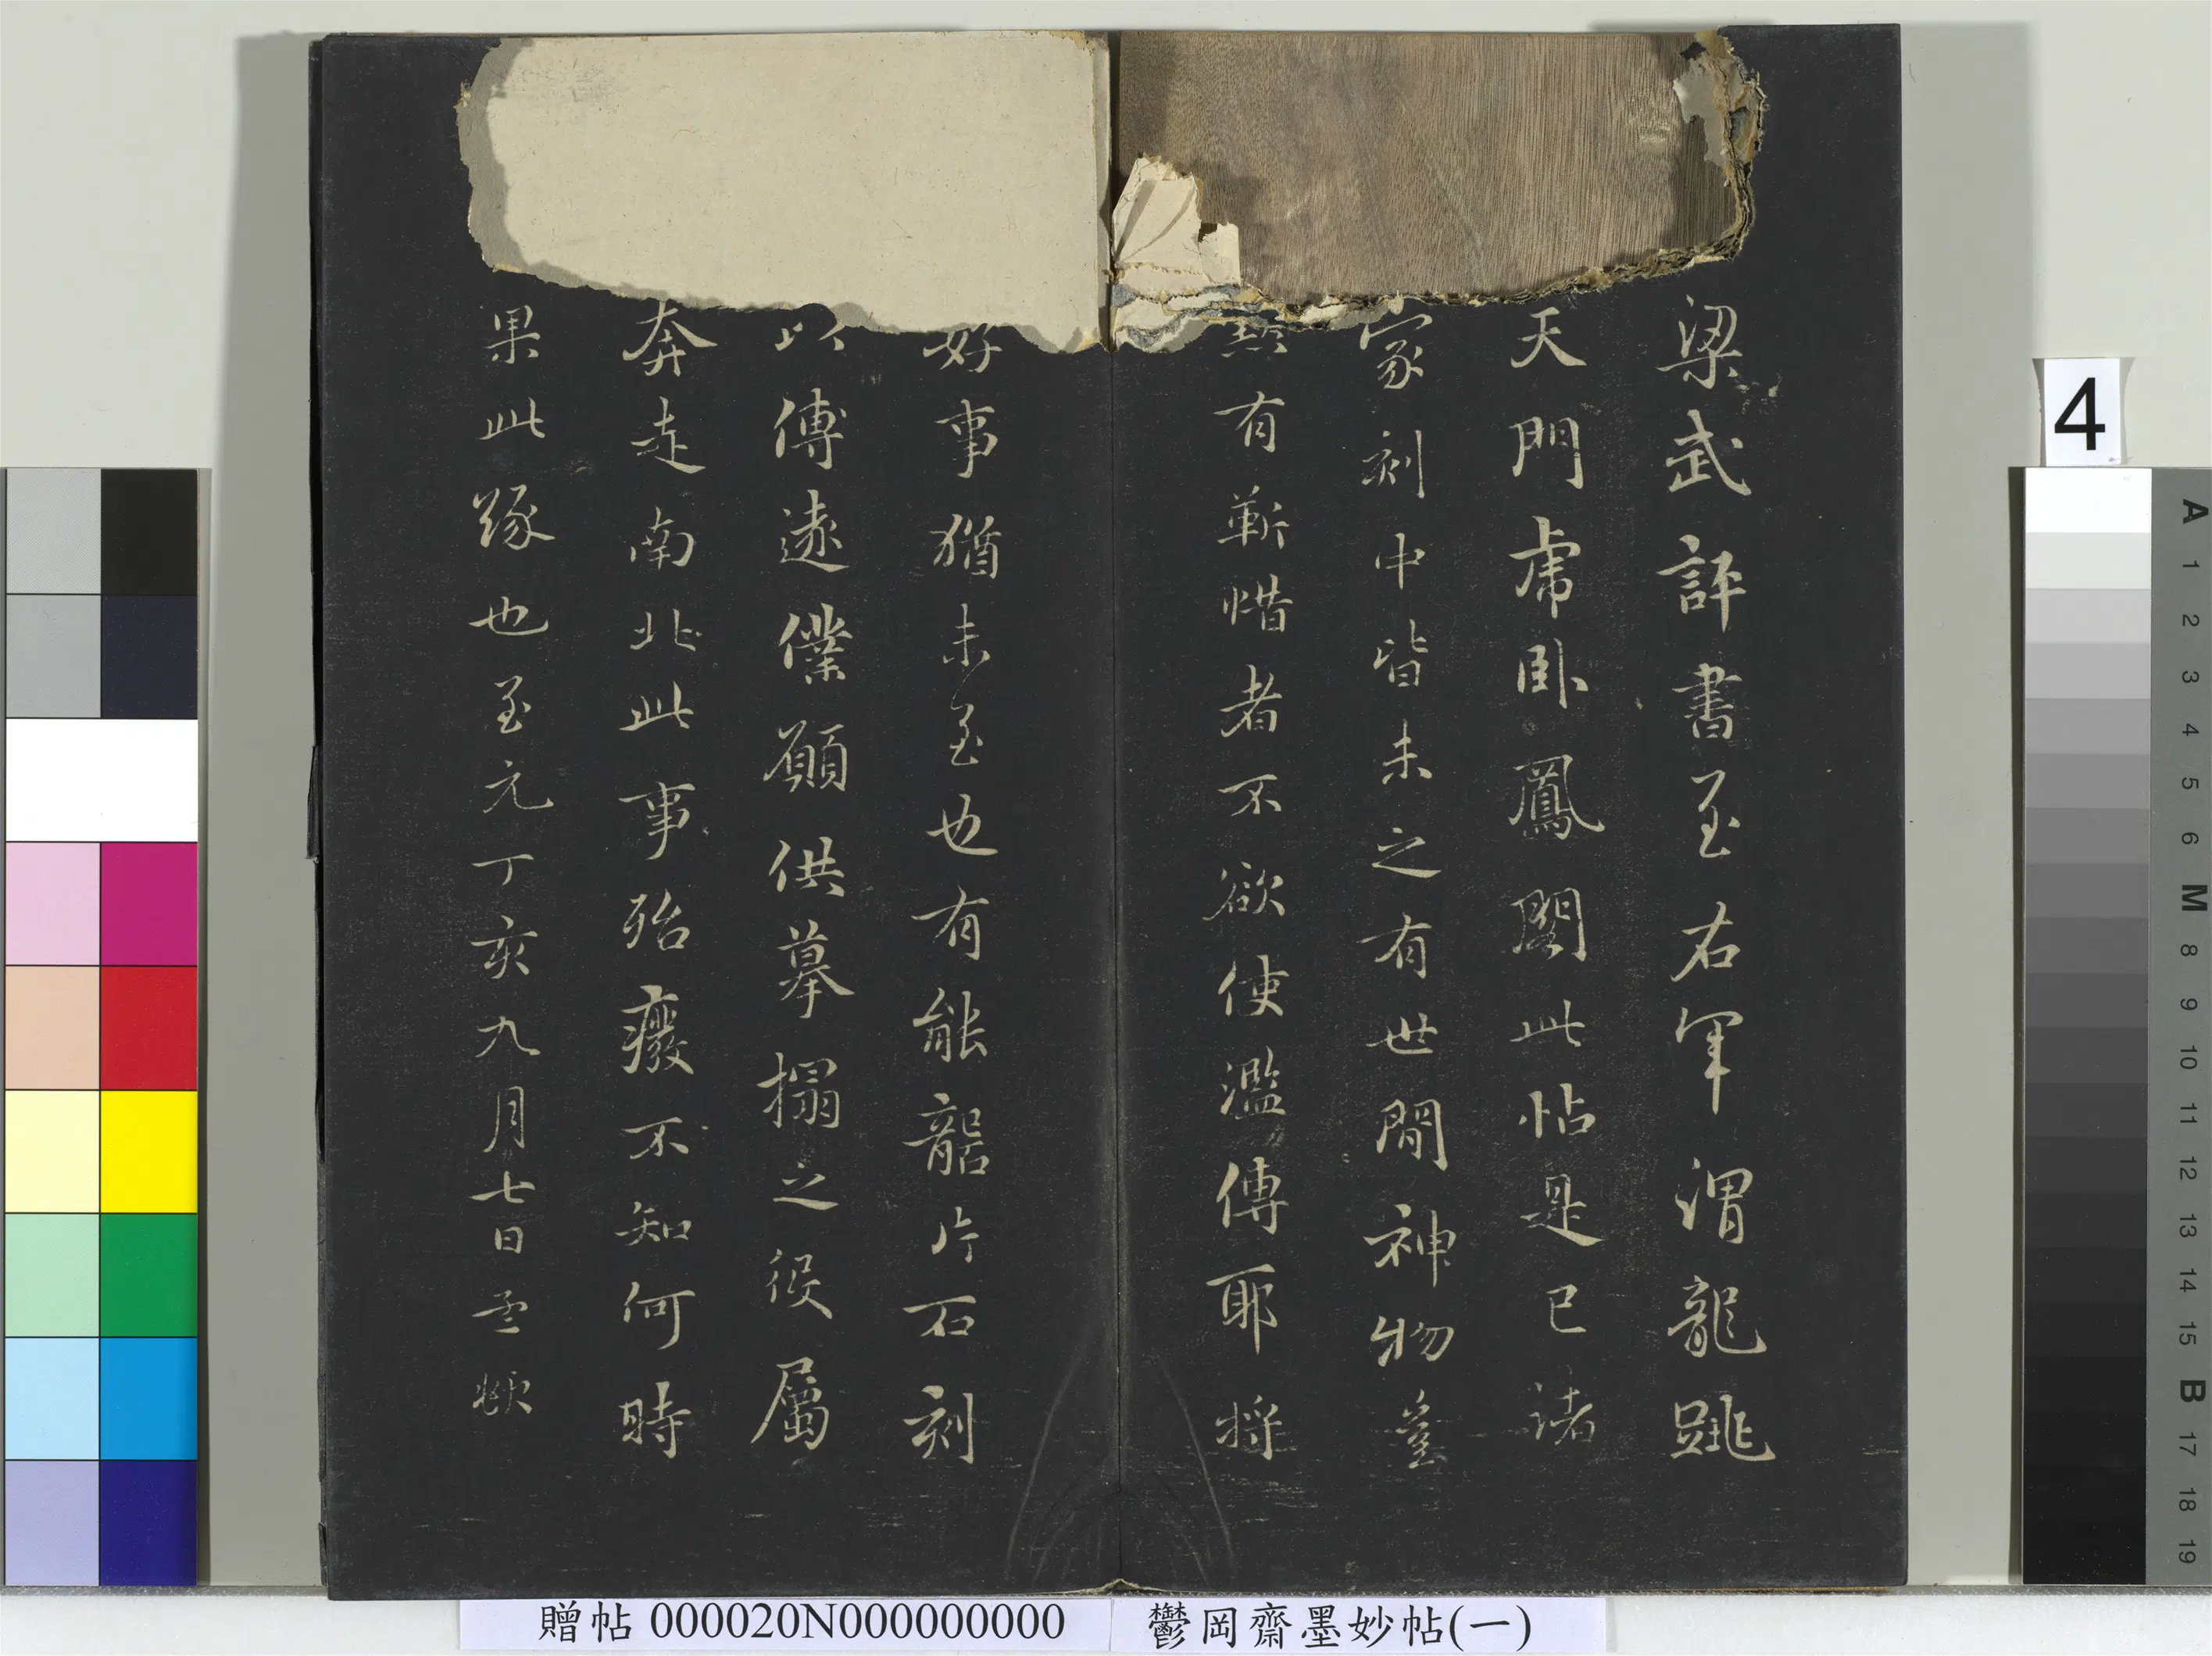 梁武評書至右軍謂龍跳
天門虎臥鳳閣此帖是已諸
家刻中皆未之有世間神物豈
有靳惜者不欲使濫傳耶將
好事猶未至也有能龕片石刻
以傳遠僕願供摹搨之役屬
奔走南北此事殆廢不知何時
果此緣也至元丁亥九月七日
贈帖 000020N000000000
鬱岡齋墨妙帖(一)
4
A
1
2
3
4
5
6
M
8
9
10
11
12
13
14
15
B
17
18
19